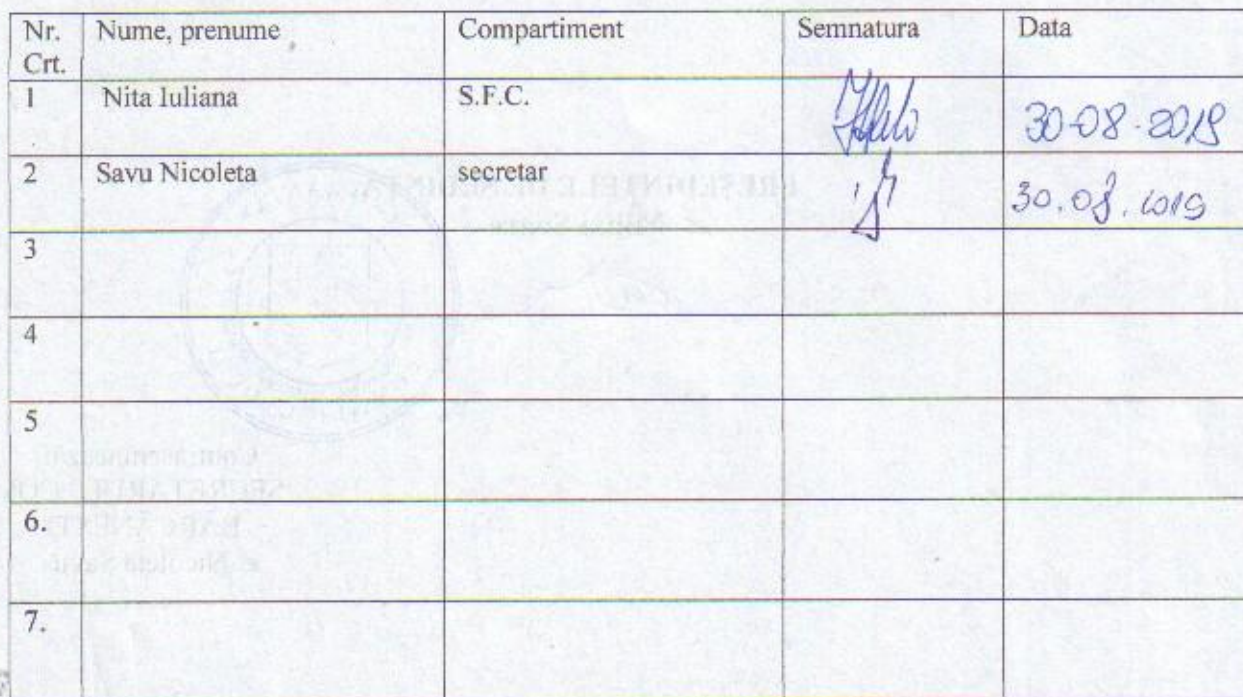 Nr. Crt. Nume, prenume Compartiment Semnatura Data
1 Nita Iuliana S.F.C. 30-08-2019
2 Savu Nicoleta secretar 30.08.2019
3
4
5
6.
7.